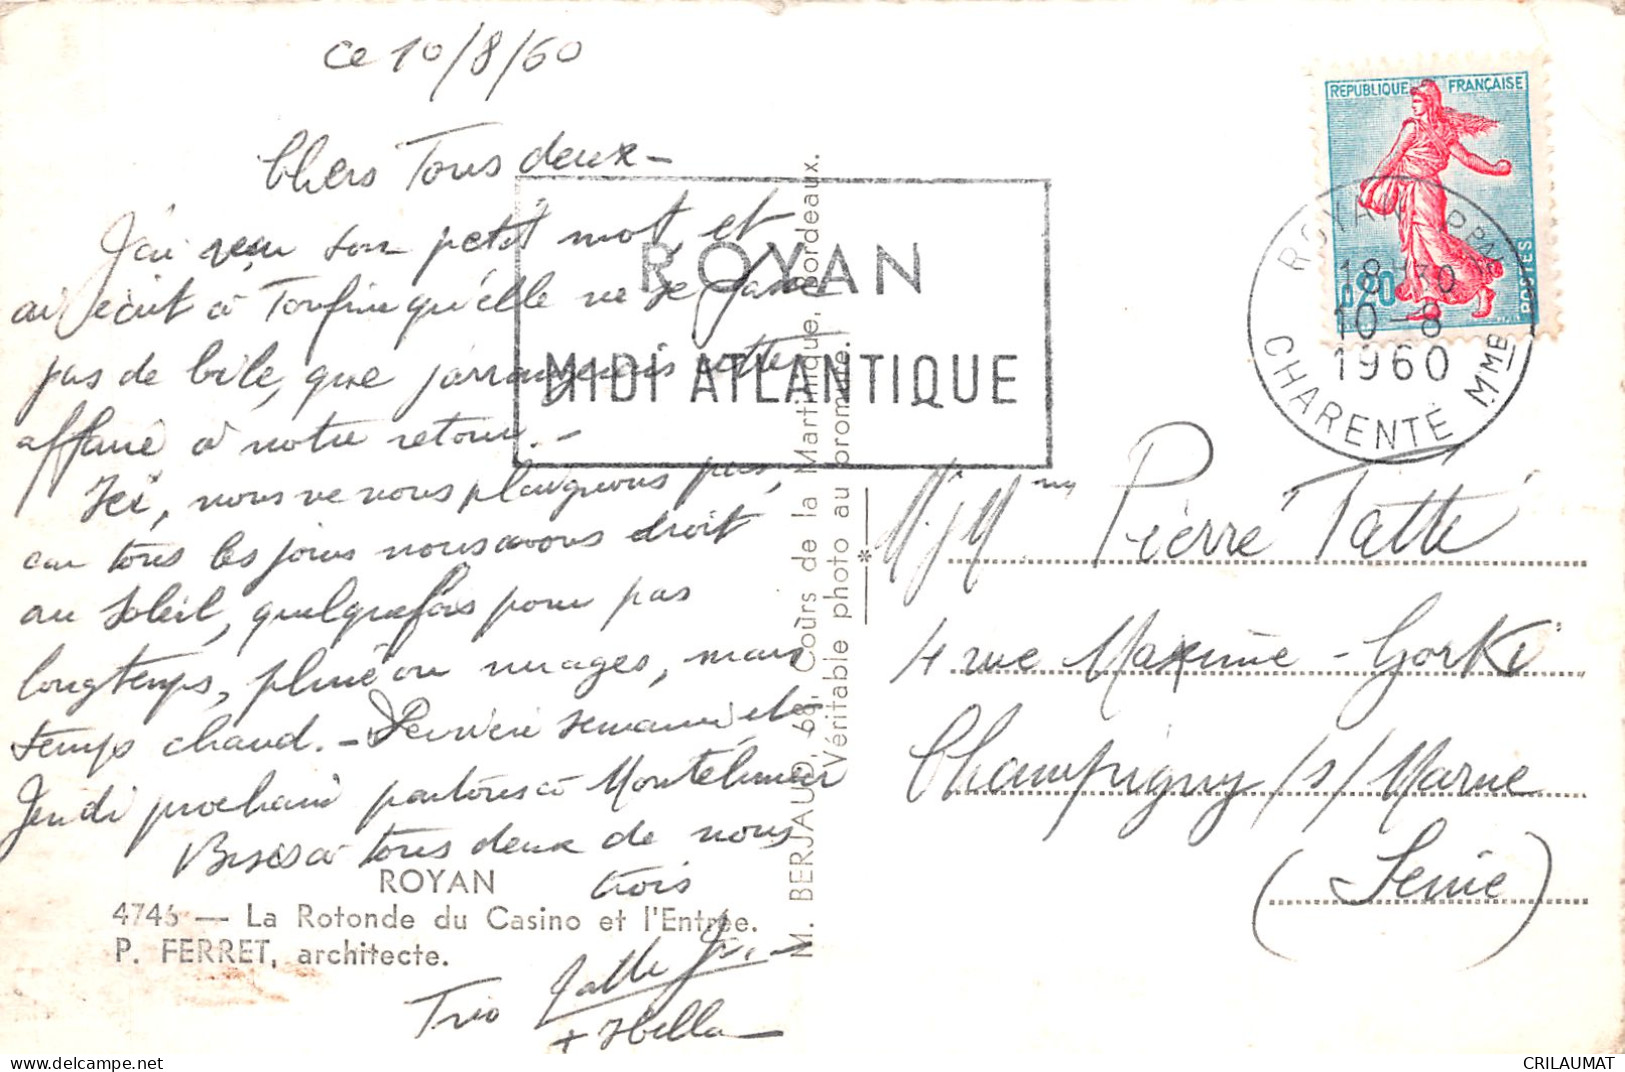 ce 10/8/60
Chers Tous deux -
J'ai reçu son petit mot, et
ai écrit à Toufine qu'elle ne se fasse
pas de bile, que j'arrangerais cette
affaire à notre retour. -
Ici, nous ne nous plaignons pas,
car tous les jours nous avons droit
au Soleil, quelquefois pour pas
longtemps, pluie ou nuages, mais
temps chaud. - Dernière semaine et
Jeudi prochain partons à Montélimar
Bises à tous deux de nous
trois
Trio Tatté
+ Isbella
ROYAN
4746 — La Rotonde du Casino et l'Entrée.
P. FERRET, architecte.
M. BERJAUD, 68, Cours de la Martinique, Bordeaux.
Véritable photo au bromure.
ROYAN
MIDI ATLANTIQUE
REPUBLIQUE FRANÇAISE
0,20
POSTES
ROYAN PPAL
18H30
10-8
1960
CHARENTE MME
Pierre Tatté
4 rue Maxime-Gorki
Champigny/s/Marne
(Seine)
delcampe.net
CRILAUMAT